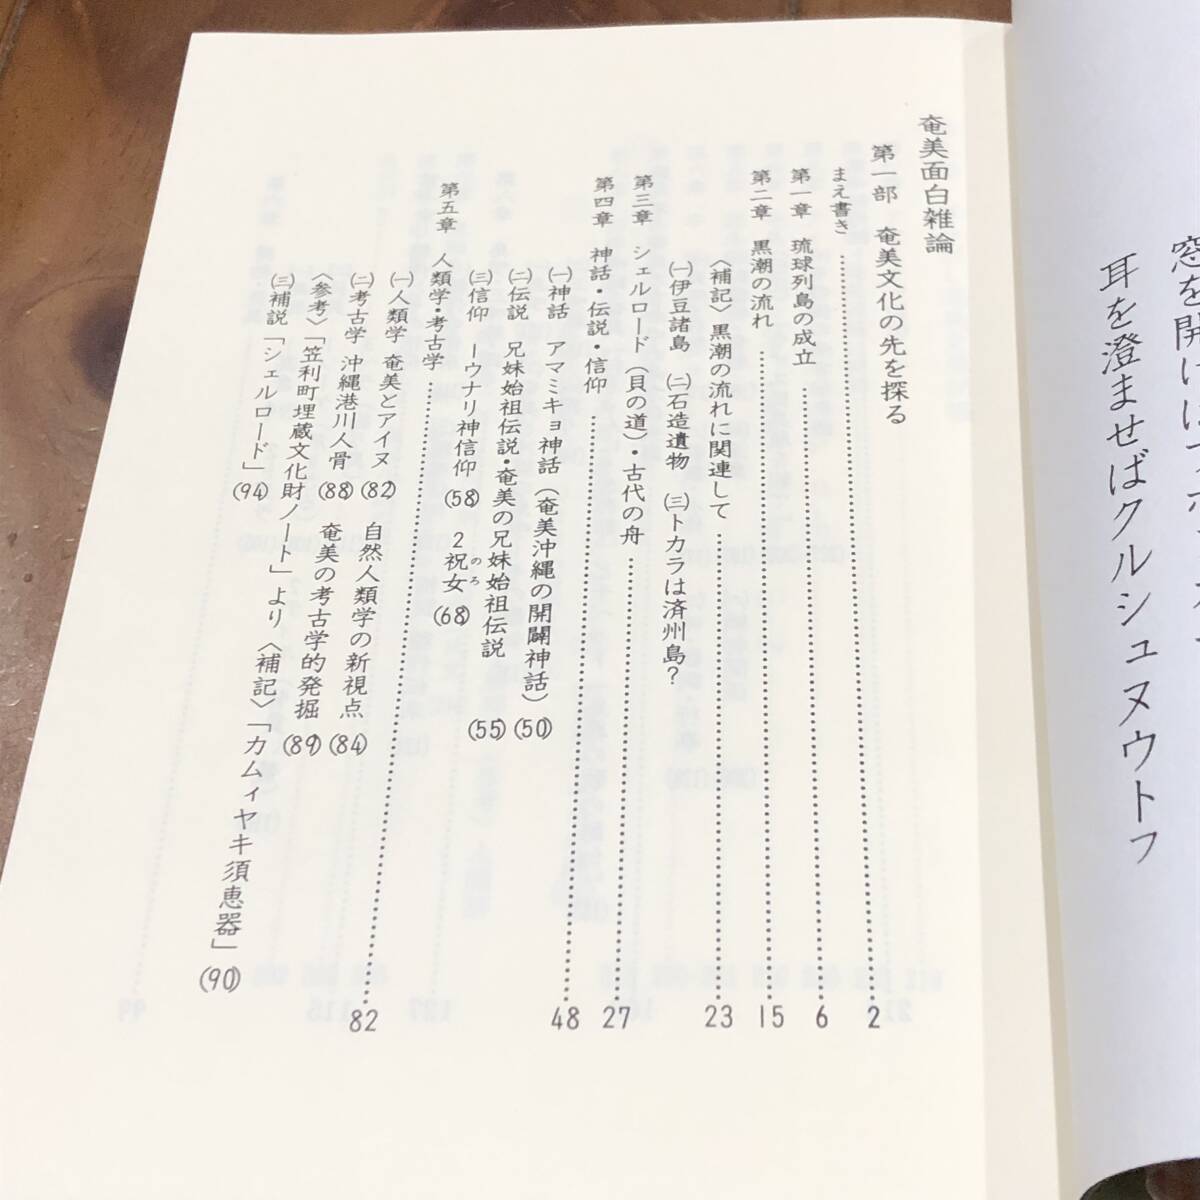 窓を開けば
耳を澄ませばクルシュヌウトゥ
奄美面白雑論
第一部　奄美文化の先を探る
まえ書き……………………2
第一章　琉球列島の成立……………………6
第二章　黒潮の流れ……………………15
〈補記〉黒潮の流れに関連して……………………23
㈠伊豆諸島　㈡石造遺物　㈢トカラは済州島？
第三章　シェルロード（貝の道）・古代の舟……………………27
第四章　神話・伝説・信仰……………………48
㈠神話　アマミキョ神話（奄美沖縄の開闢神話）(50)
㈡伝説　兄妹始祖伝説・奄美の兄妹始祖伝説　(55)
㈢信仰　1ウナリ神信仰(58)　2祝女(のろ)(68)
第五章　人類学・考古学……………………82
㈠人類学　奄美とアイヌ(82)　自然人類学の新視点(84)
㈡考古学　沖縄港川人骨(88)　奄美の考古学的発掘(89)
〈参考〉「笠利町埋蔵文化財ノート」より〈補記〉「カムィヤキ須恵器」(90)
㈢補説「シェルロード」(94)